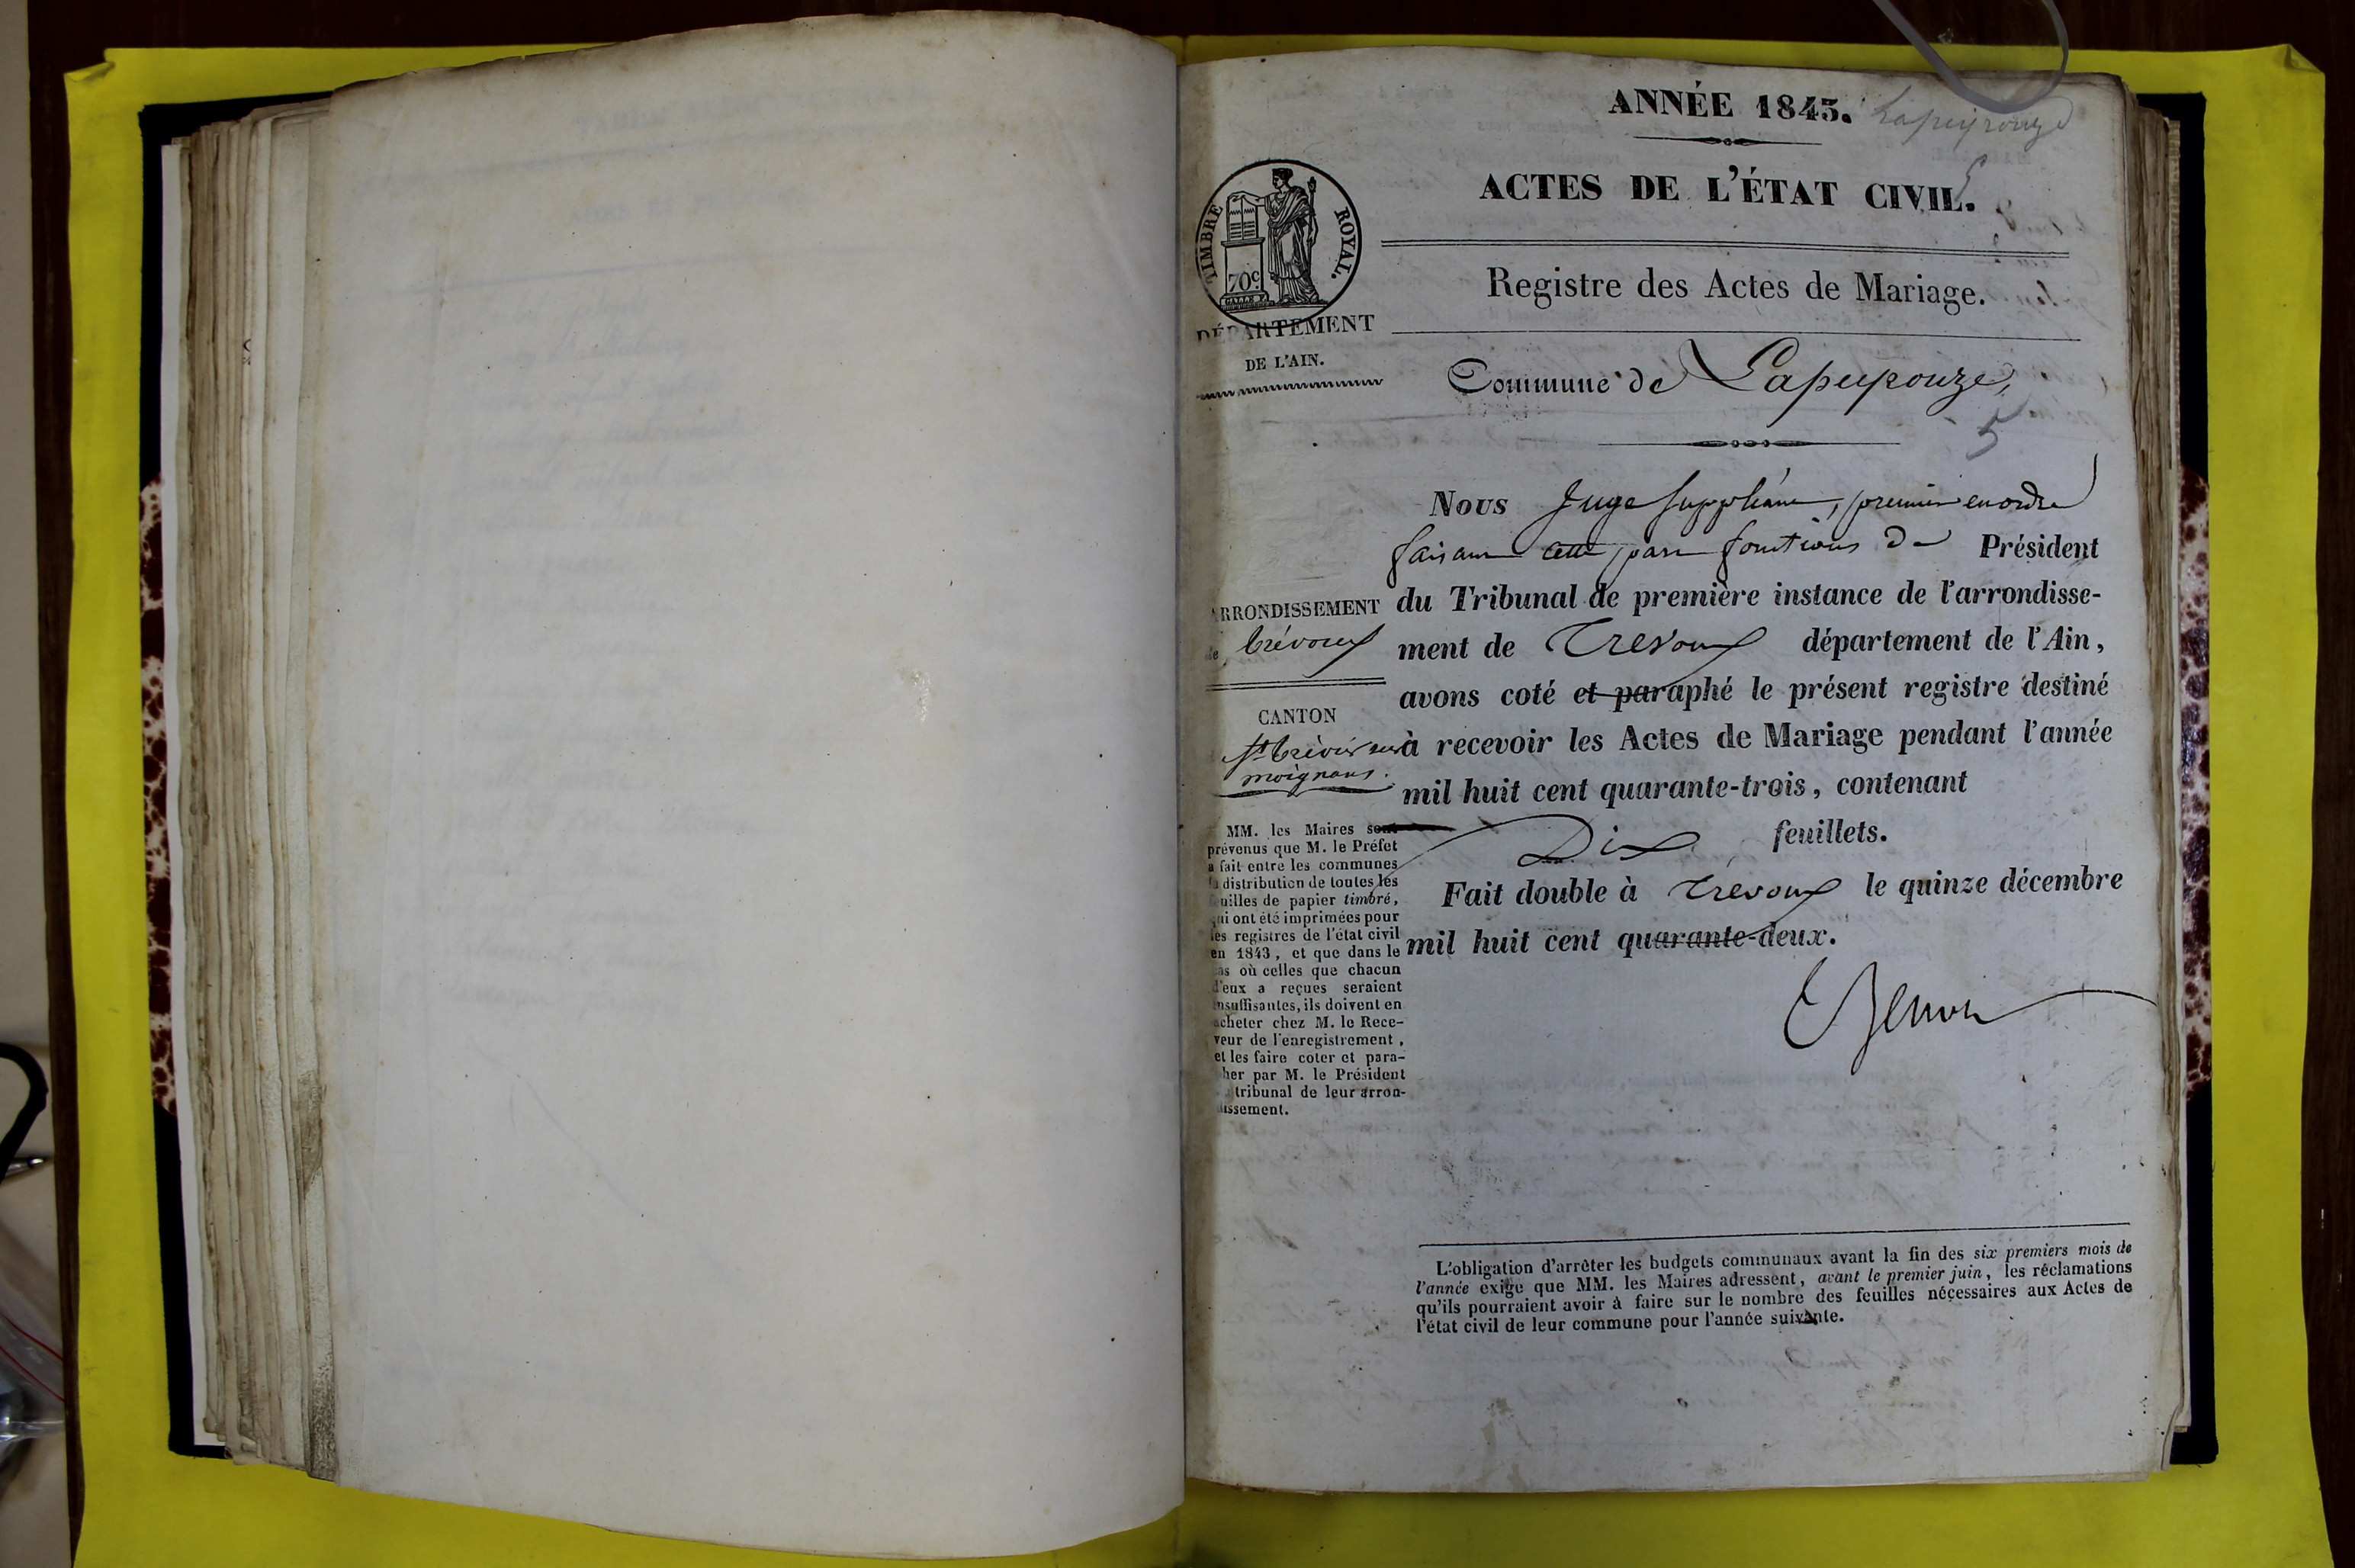 ANNÉE 1843. Lapeyrouze
ACTES DE L'ÉTAT CIVIL.
TIMBRE ROYAL.
70c
Registre des Actes de Mariage.
DÉPARTEMENT
DE L'AIN.
Commune de Lapeyrouze,
5
Nous Juge Suppléant, premier en ordre
faisant cette part fonctions de Président
du Tribunal de première instance de l'arrondisse-
ment de Trevoux département de l'Ain,
avons coté et paraphé le présent registre destiné
à recevoir les Actes de Mariage pendant l'année
mil huit cent quarante-trois, contenant
Dix feuillets.
Fait double à Trevoux le quinze décembre
mil huit cent quarante-deux.
ARRONDISSEMENT
de Trévoux
CANTON
St Trivier sur
moignans.
MM. les Maires sont
prévenus que M. le Préfet
a fait entre les communes
la distribution de toutes les
feuilles de papier timbré,
qui ont été imprimées pour
les registres de l'état civil
en 1843, et que dans le
cas où celles que chacun
d'eux a reçues seraient
insuffisantes, ils doivent en
acheter chez M. le Rece-
veur de l'enregistrement,
et les faire coter et para-
pher par M. le Président
tribunal de leur arron-
dissement.
L'obligation d'arrêter les budgets communaux avant la fin des six premiers mois de
l'année exige que MM. les Maires adressent, avant le premier juin, les réclamations
qu'ils pourraient avoir à faire sur le nombre des feuilles nécessaires aux Actes de
l'état civil de leur commune pour l'année suivante.